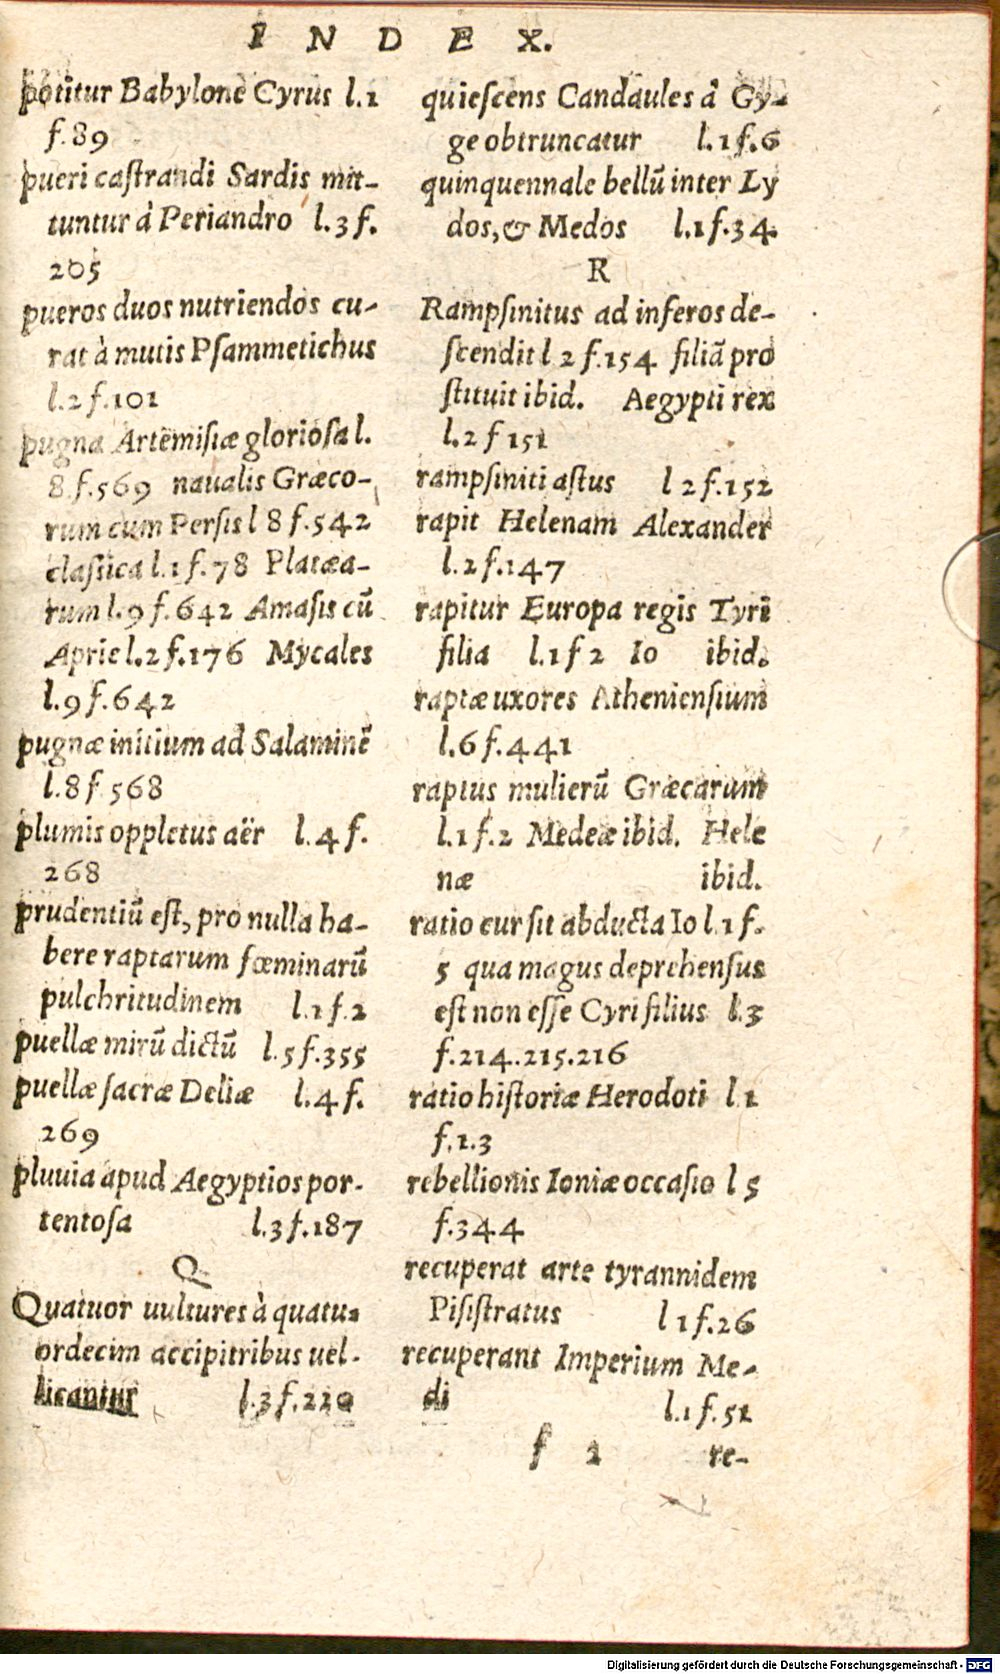 INDEX.
potitur Babylone Cyrus l.1
f.89
pueri caſtrandi Sardis mit-
tuntur à Periandro l.3 f.
205
pueros duos nutriendos cu-
rat à mutis Pſammetichus
l.2 f.101
pugna Artemiſiæ glorioſa l.
8.f.569 naualis Græco-
rum cum Perſis l 8 f.542
claſſica l.1 f.78 Platæa-
rum l.9 f.642 Amaſis cū
Aprie l.2 f.176 Mycales
l.9 f.642
pugnæ initium ad Salaminē
l.8 f 568
plumis oppletus aër l.4 f.
268
prudentiū eſt, pro nulla ha-
bere raptarum fœminarū
pulchritudinem l.1 f.2
puellæ mirū dictū l.5 f.355
puellæ ſacræ Deliæ l.4 f.
269
pluuia apud Aegyptios por-
tentoſa l.3 f.187
Q
Quatuor uultures à quatu-
ordecim accipitribus uel-
licantur l.3 f.220
quieſcens Candaules à Gy-
ge obtruncatur l.1 f.6
quinquennale bellū inter Ly
dos, & Medos l.1 f.34
R
Rampſinitus ad inferos de-
ſcendit l 2 f.154 filiā pro
ſtituit ibid. Aegypti rex
l.2 f 151
rampſiniti aſtus l 2 f.152
rapit Helenam Alexander
l.2 f.147
rapitur Europa regis Tyri
filia l.1 f 2 Io ibid.
raptæ uxores Athenienſium
l.6 f.441
raptus mulierū Græcarum
l.1 f.2 Medeæ ibid. Hele
næ ibid.
ratio cur ſit abducta Io l.1 f.
5 qua magus deprehenſus
eſt non eſſe Cyri filius l.3
f.214.215.216
ratio hiſtoriæ Herodoti l 1
f.1.3
rebellionis Ioniæ occaſio l 5
f.344
recuperat arte tyrannidem
Piſiſtratus l 1 f.26
recuperant Imperium Me-
di l.1 f.51
f 2 re-
Digitalisierung gefördert durch die Deutsche Forschungsgemeinschaft - DFG